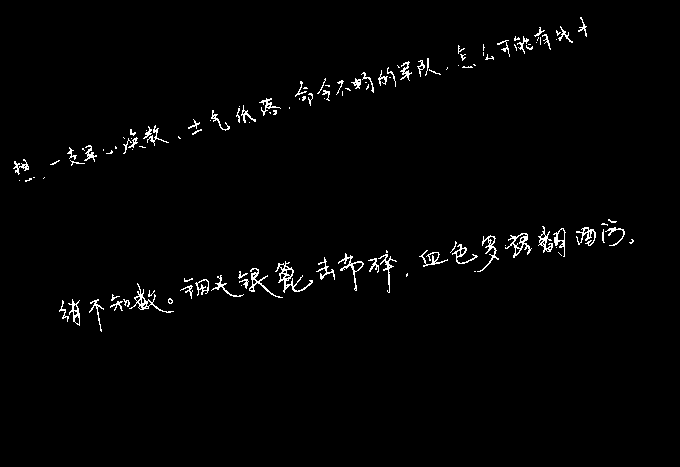 想,一支军心涣散、士气低落、命令不畅的军队,怎么可能有战斗
绡不知数。钿头银篦击节碎,血色罗裙翻酒污。